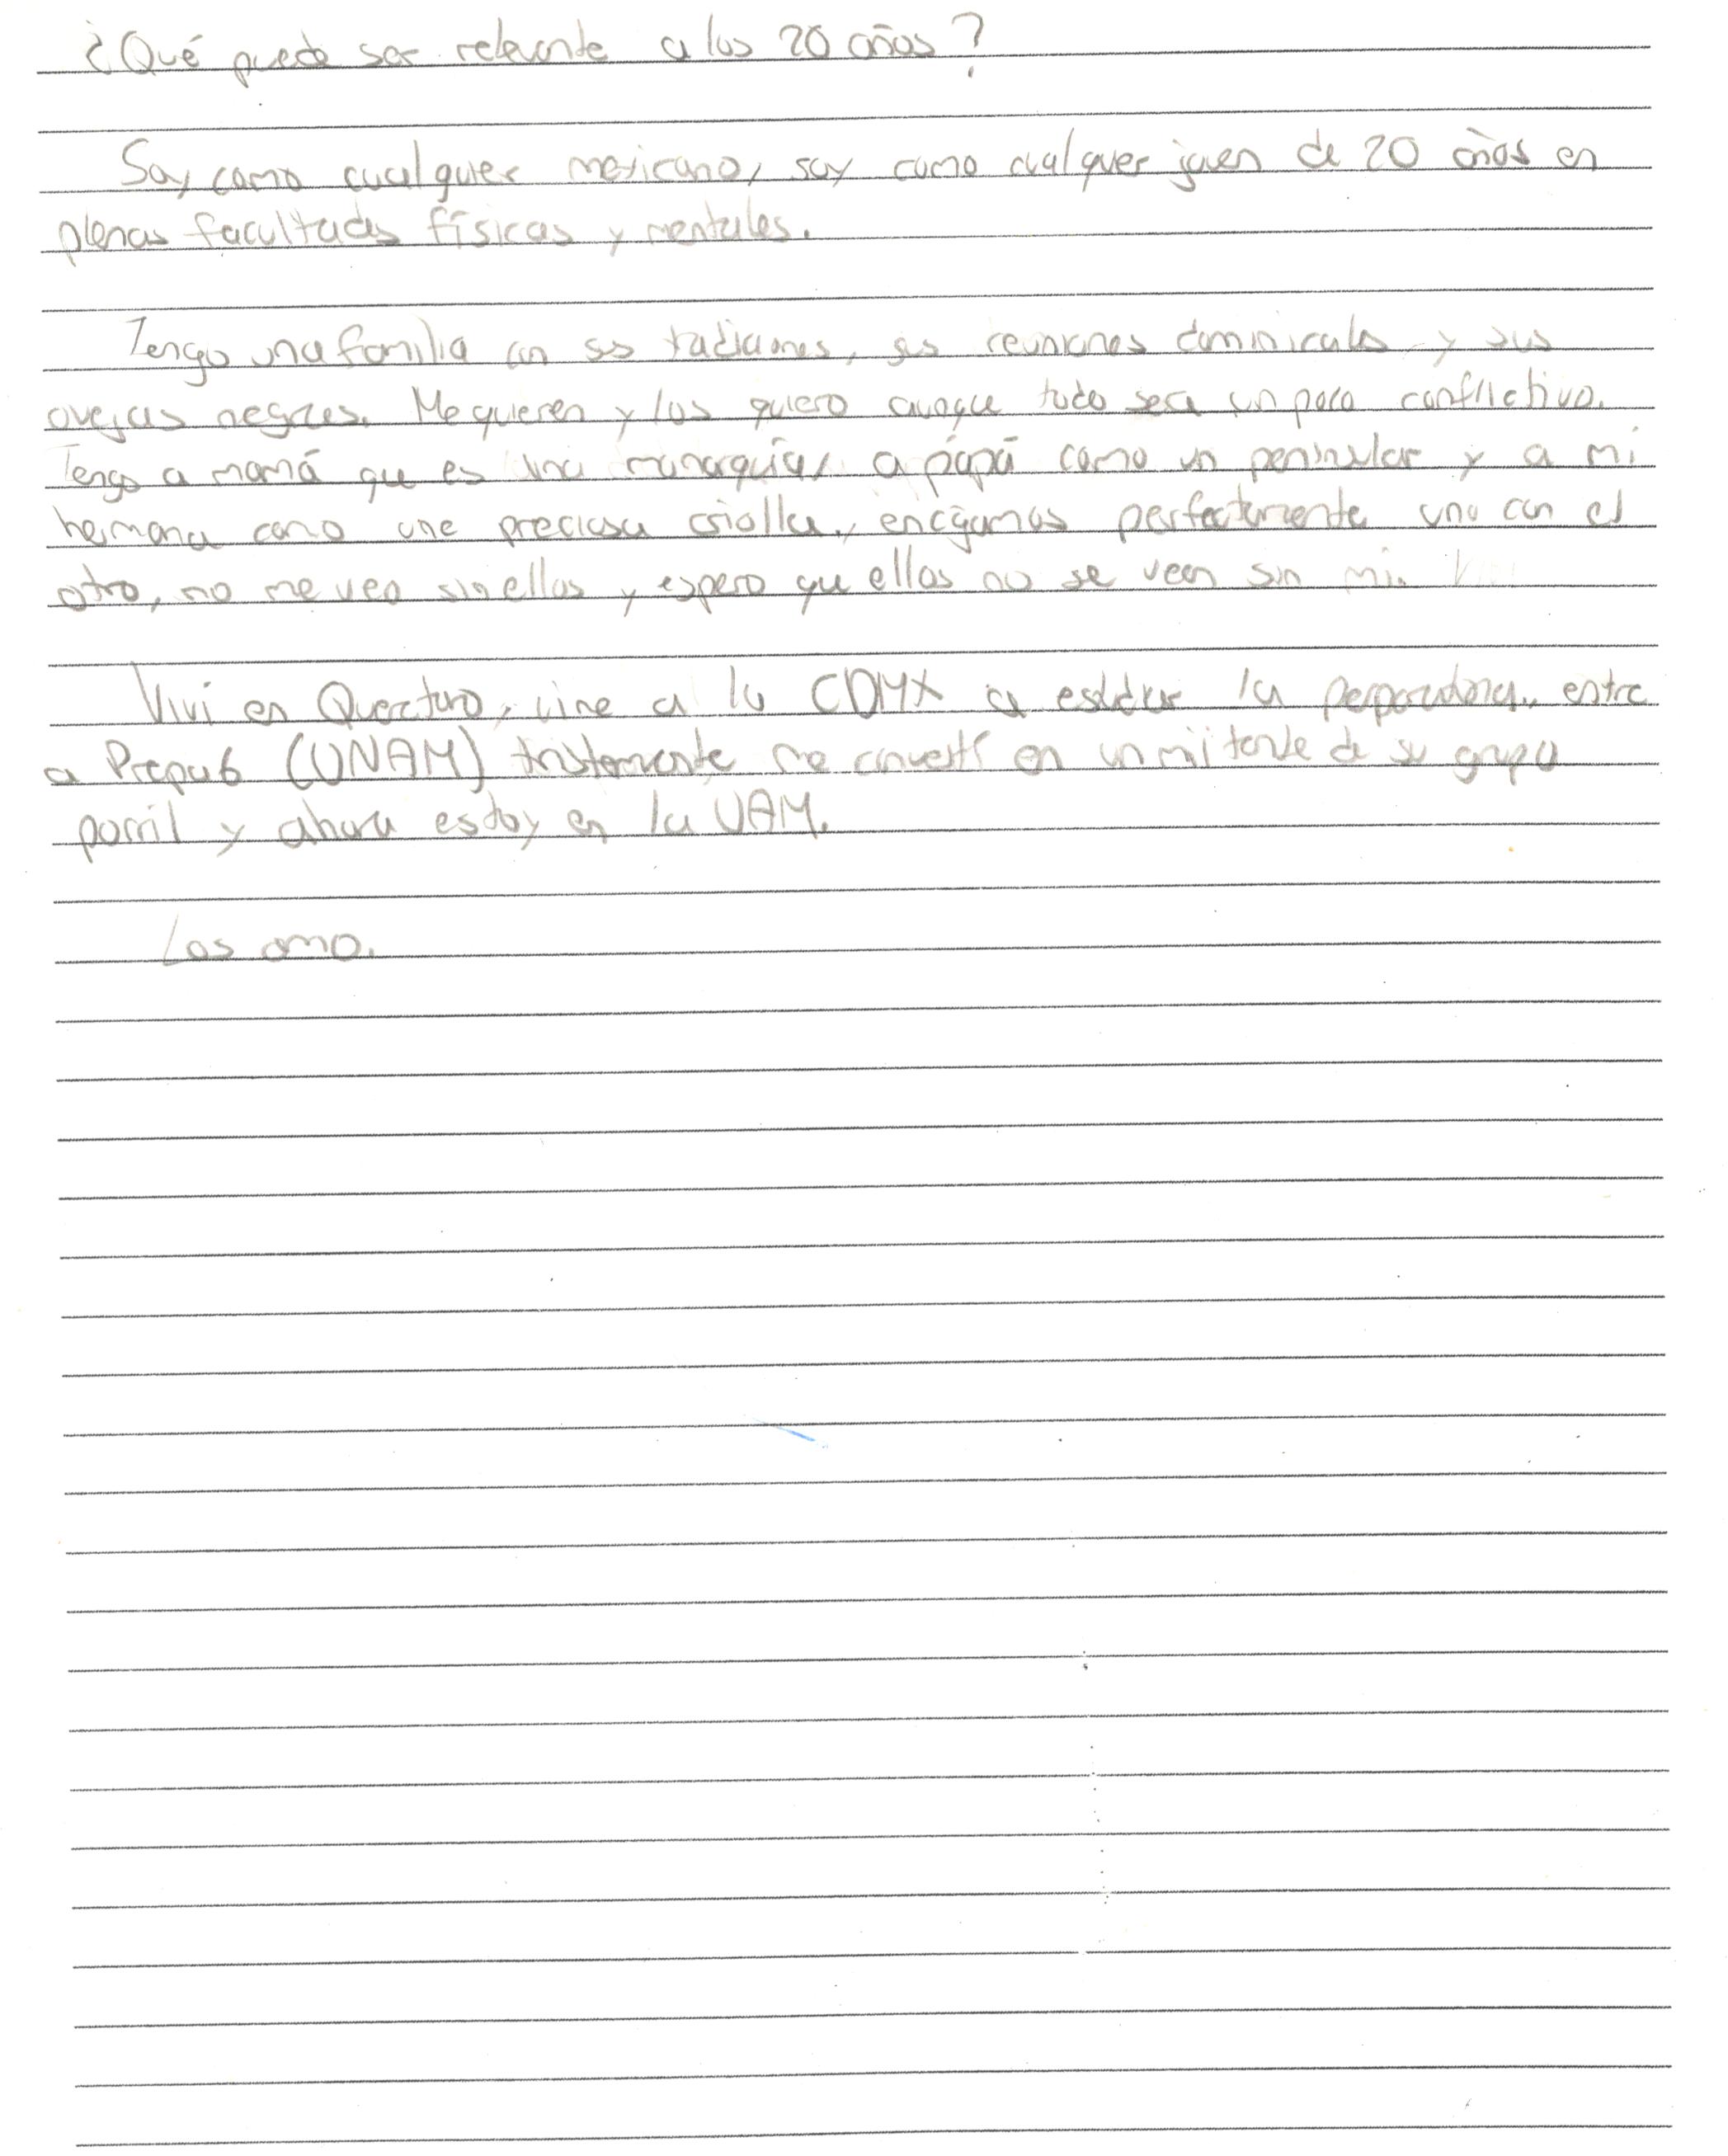 ¿Qué puede ser relevante a los 20 años?
Soy como cualquier mexicano, soy como cualquer joven de 20 años en
plenas facultades físicas y mentales.
Tengo una familia con sus tradiciones, sus reuniones dominicales y sus
ovejas negras. Me quieren y los quiero aunque todo sea un poco conflictivo.
Tengo a mamá que es una monarquía, a papá como un peninsular y a mi
hermana como una preciosa criolla, encajamos perfectamente uno con el
otro, no me veo sin ellos y espero que ellos no se vean sin mi.
Viví en Queretaro, vine a la CDMX a estudiar la preparatoria, entre
a Prepa 6 (UNAM) tristemente me convertí en un militante de su grupo
porril y ahora estoy en la UAM.
Los amo.